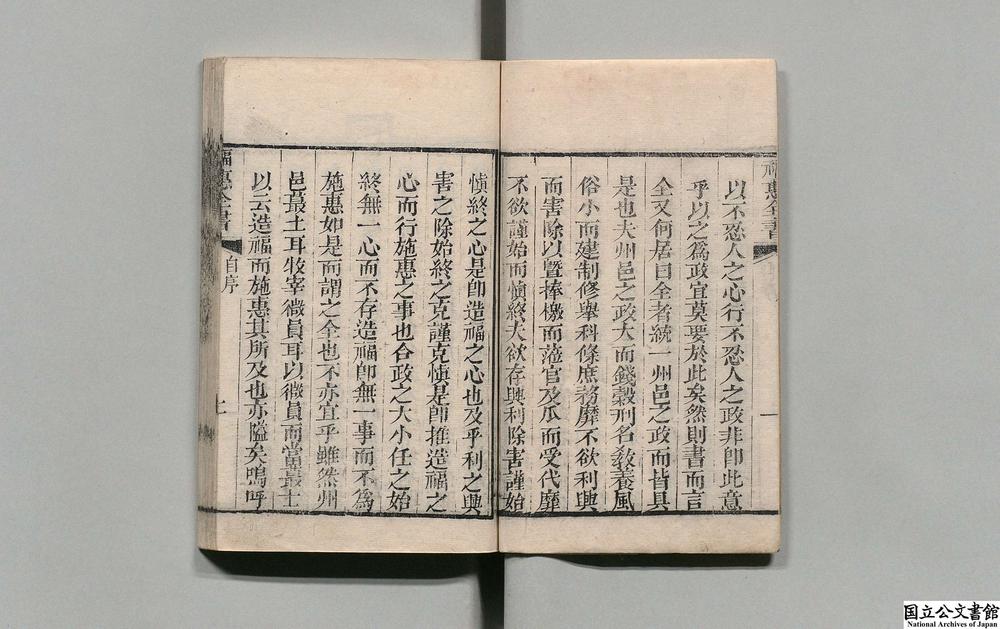 福惠全書
以不忍人之心行不忍人之政非卽此意
乎以之爲政宜莫要於此矣然則書而言
全又何居曰全者統一州邑之政而皆具
是也夫州邑之政大而錢穀刑名敎養風
俗小而建制修舉科條庶務靡不欲利興
而害除以曁捧檄而蒞官及瓜而受代靡
不欲謹始而愼終夫欲存興利除害謹始
愼終之心是卽造福之心也及乎利之興
害之除始終之克謹克愼是卽推造福之
心而行施惠之事也合政之大小任之始
終無一心而不存造福卽無一事而不爲
施惠如是而謂之全也不亦宜乎雖然州
邑蕞土耳牧宰微員耳以微員而當蕞土
以云造福而施惠其所及也亦隘矣嗚呼
福惠全書
自序
七
国立公文書館
National Archives of Japan